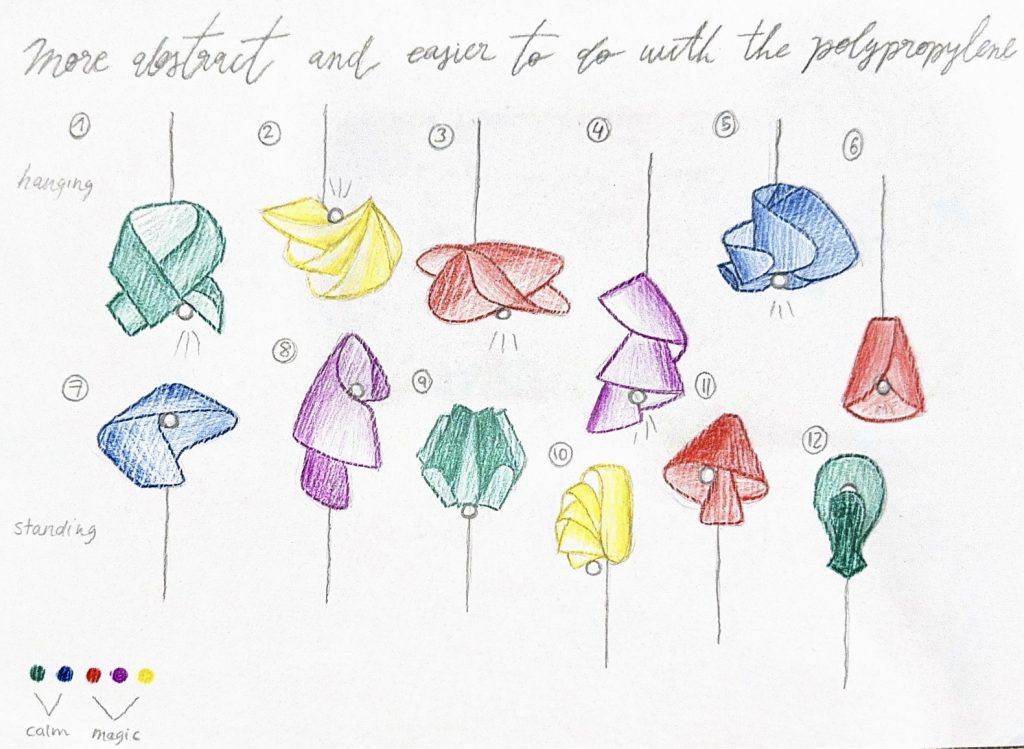 More abstract and easier to do with the polypropylene
1 2 3 4 5 6
hanging
7 8 9 10 11 12
standing
calm magic